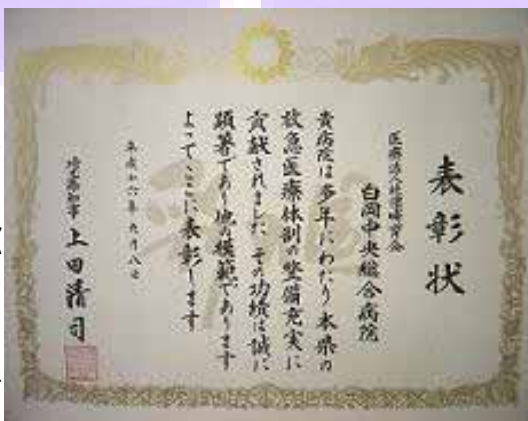 表彰状
医療法人社団哺育会
白岡中央総合病院
貴病院は多年にわたり本県の
救急医療体制の整備充実に
貢献されました その功績は誠に
顕著であり他の模範であります
よってここに表彰します
平成十六年九月八日
埼玉県知事 上田清司